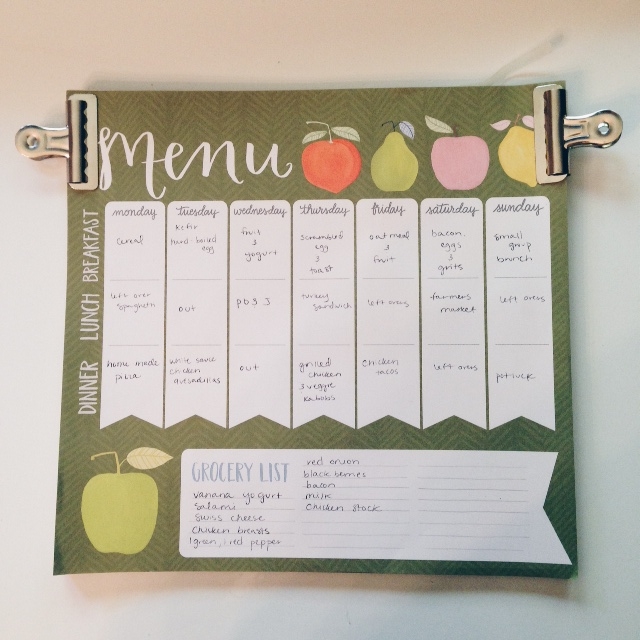 menu
monday tuesday wednesday thursday friday saturday sunday
BREAKFAST
cereal
kefir
hard-boiled
egg
fruit
&
yogurt
scrambled
egg
&
toast
oatmeal
&
fruit
bacon,
eggs
&
grits
small
group
brunch
LUNCH
left over
spaghetti
out
pb & j
turkey
sandwich
left overs
farmers
market
left overs
DINNER
home made
pizza
white sauce
chicken
quesadillas
out
grilled
chicken
& veggie
kabobs
chicken
tacos
left overs
potluck
GROCERY LIST
vanana yogurt
salami
swiss cheese
chicken breasts
1 green, 1 red pepper
red onion
blackberries
bacon
milk
chicken stock